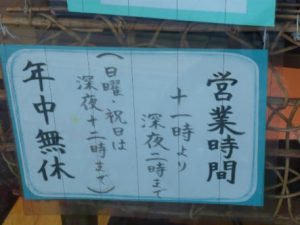 営業時間
十一時より
深夜二時まで
(日曜・祝日は
深夜十二時まで)
年中無休